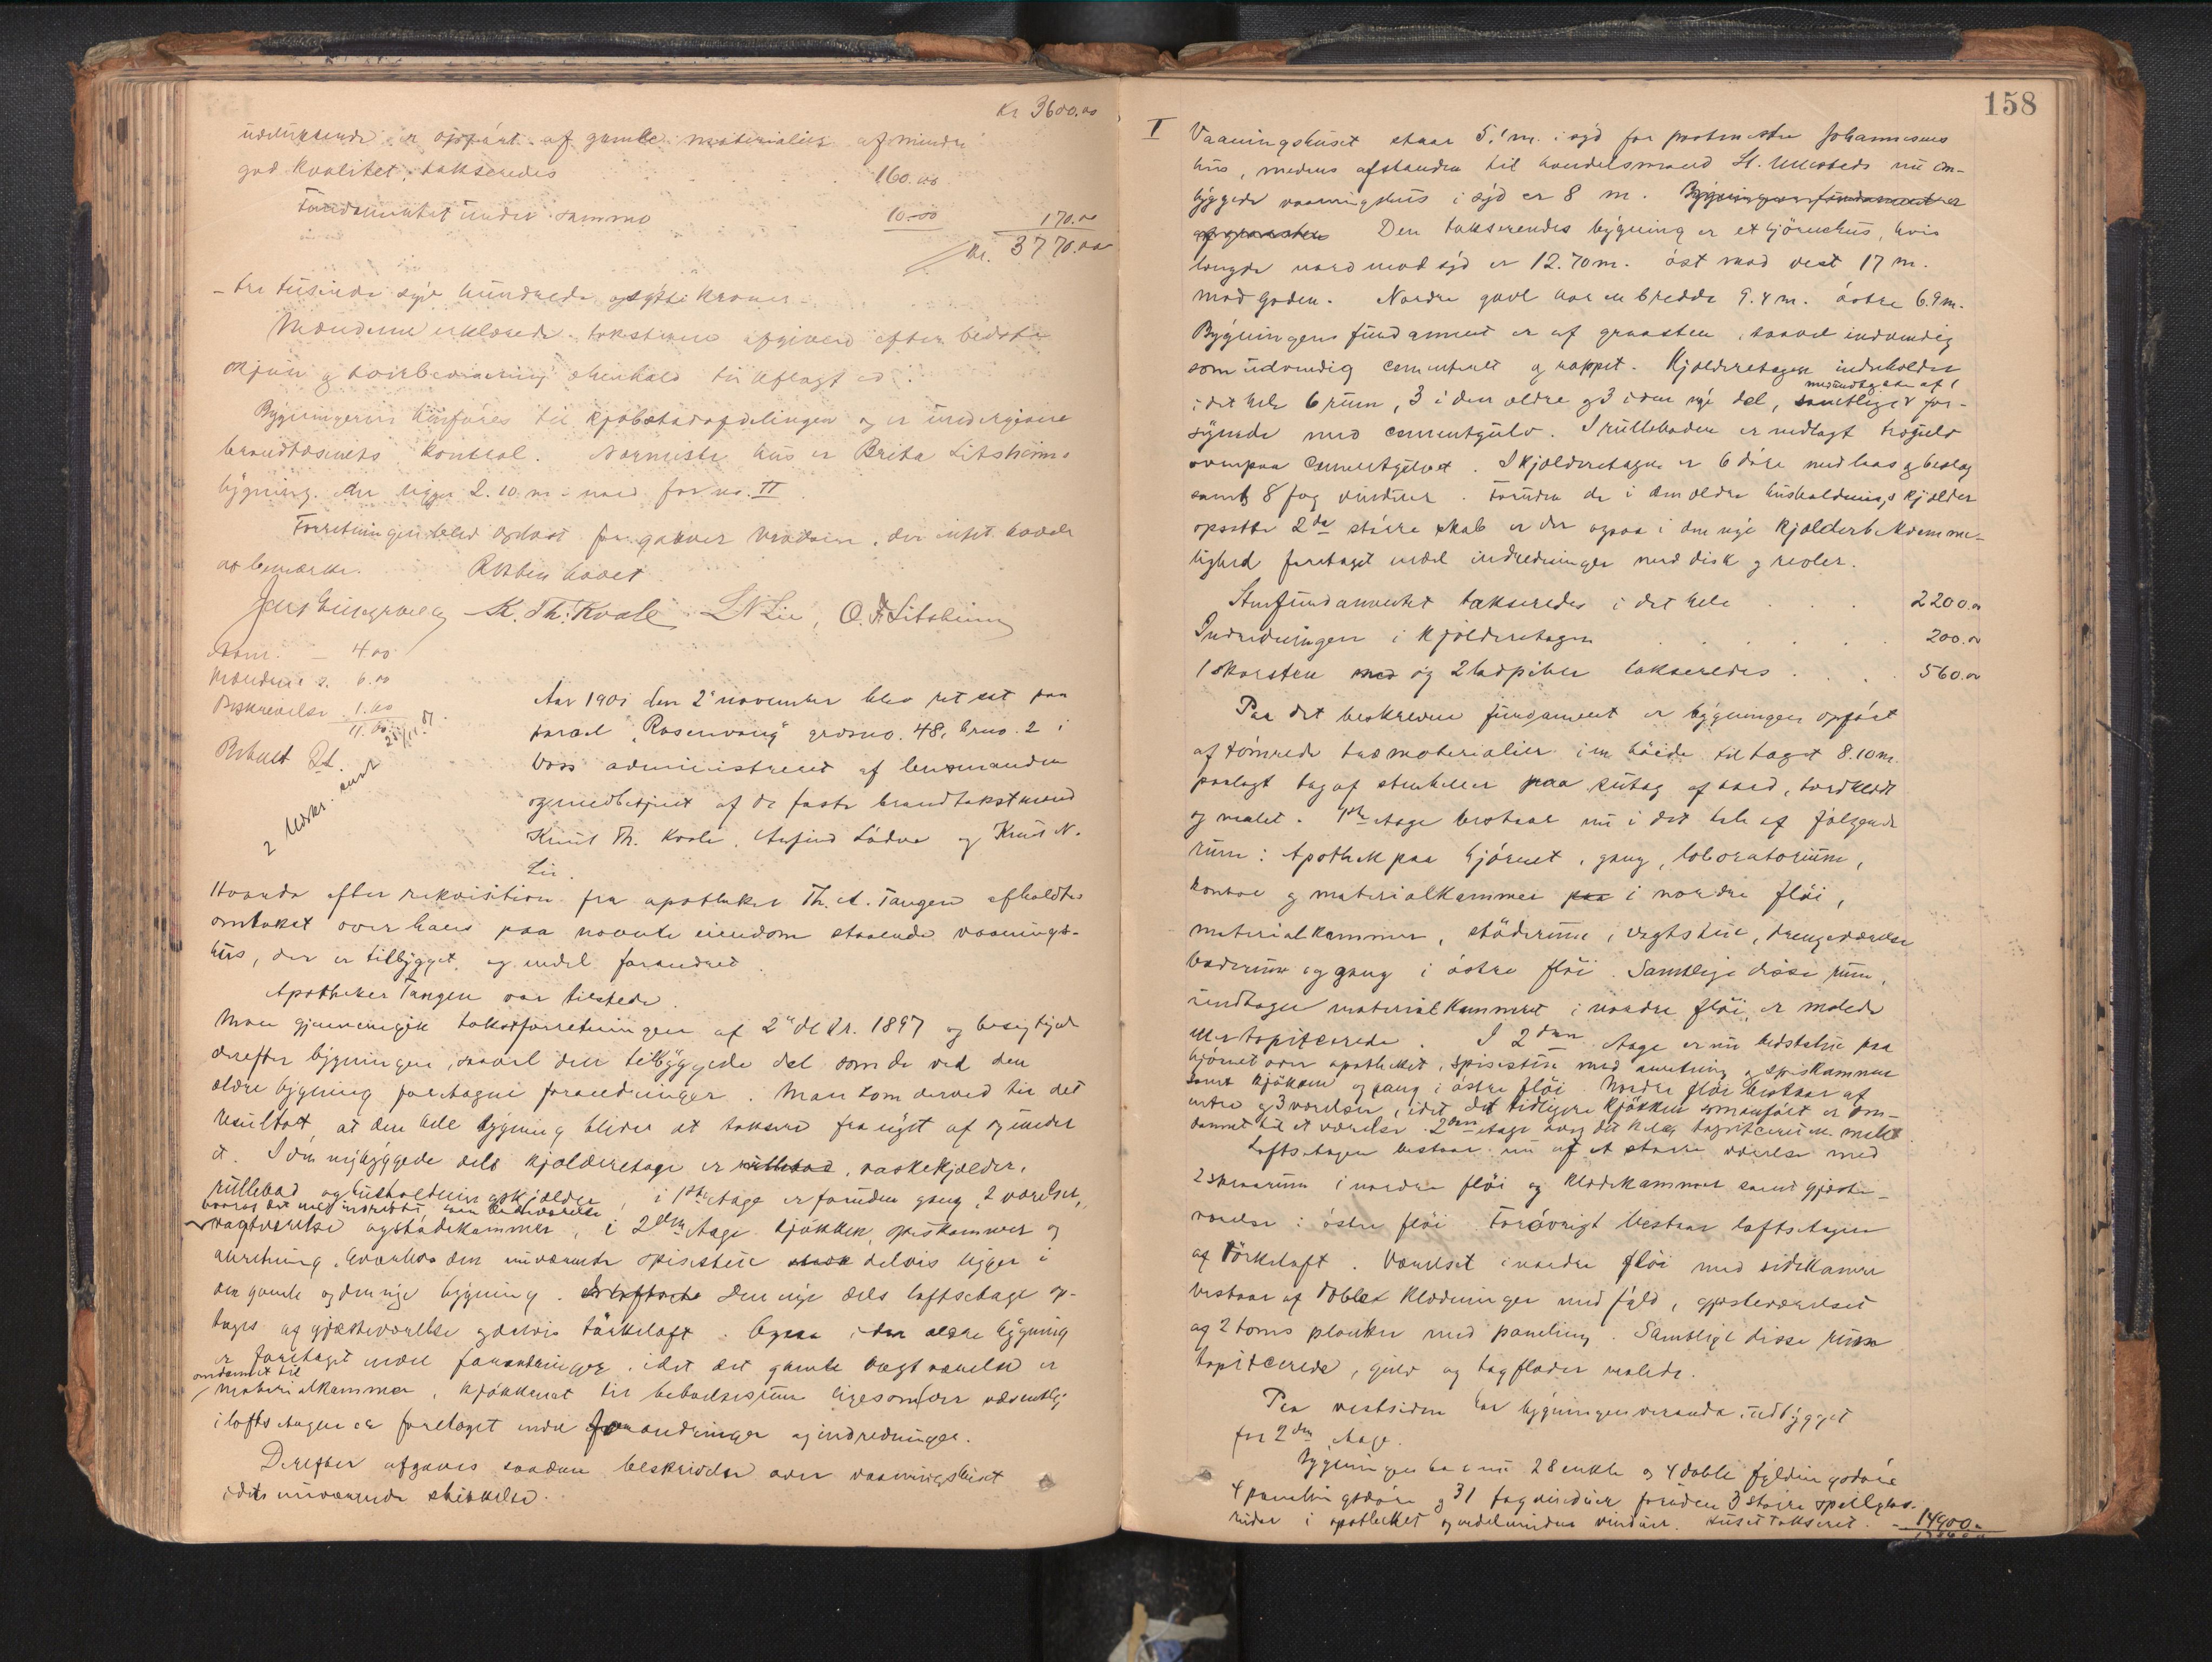 Kr 3600.00
er opført af gamle materialier af mindre
god kvalitet, takseredes 160.00
Fundamentet under samme 10.00 170.00
Kr. 3770.00
- tre tusinde syv hundrede og sytti kroner -
Mændene erklærede taksterne afgivne efter bedste
skjøn og overbevisning i henhold til aflagt ed.
Bygningerne henføres til kjøbstadafdelingen og er undergivne
brandvæsenets kontrol. Nærmeste hus er Brita Litsheims
bygning, der ligger 2.10 m i nord for no. II
Forretningen blev oplæst for der intet havde
at bemerke. Retten hævet
K. Th. Kvale L N Lie, O. Litsheim
4.00
Mændene 6.00
Beskrivelse 1.00
11.00
Betalt
2 Udskr.
Aar 1901 den 2 november blev ret sat paa
parcel "Rosenvang" grdsno. 48, brno. 2 i
Voss administreret af lensmanden
og medbetjent af de faste brandtakstmænd
Knut Th. Kvale, Anfind Lødve og Knut N.
Lie.
Hvorda efter rekvisition fra apotheker Th. A. Tangen afholdtes
omtakst over hans paa nævnte eiendom staaende vaanings-
hus, der er tilbygget og endel forandret.
Apotheker Tangen var tilstede.
Man gjennemgik takstforretningen af 2 dcbr. 1897 og besigtigede
derefter bygningen, saavel den tilbyggede del som de ved den
ældre bygning foretagne forandringer. Man kom derved til det
resultat, at den hele bygning bliver at taksere fra nyt af og under
et. I den nybyggede dels kjælderetage er rullebod, vaskekjælder,
rullebod og husholdningskjælder, i 1ste etage er foruden gang, 2 værelser,
vagtværelse og stødekammer, i 2den etage kjøkken, spiskammer og
anretning, hvorhos den nuværende spisestue delvis ligger i
den gamle og den nye bygning. Den nye dels loftsetage op-
tages af gjesteværelse og delvis tørkeloft. Ogsaa i den ældre bygning
er foretaget endel forandringer, idet det gamle vagtværelse er
omdannet til
materialkammer, kjøkkenet til beboelsesrum ligesom der væsentlig
i loftsetagen er foretaget endel forandringer og indredninger.
Derefter afgaves saadan beskrivelse over vaaningshuset
i dets nuværende skikkelse.
158
I Vaaningshuset staar 5.1 m. i syd for postmester Johannesens
hus, medens afstanden til handelsmand St. nu om-
byggede vaaningshus i syd er 8 m. Bygningens fundament er
af graasten Den takserendes bygning er et hjørnehus, hvis
længde nord mod syd er 12.70 m. øst mod vest 17 m.
mod gaden. Nordre gavl har en bredde 9.4 m. østre 6.9 m.
Bygningens fundament er af graasten, saavel indvendig
som udvendig cementeret og rappet. Kjælderetagen indeholder
med undtagelse af 1
i det hele 6 rum, 3 i den ældre og 3 i den nye del, samtlige for-
synede med cementgulv. I rulleboden er nedlagt trægulv
ovenpaa cementgulvet. I kjælderetagen er 6 døre med laas og beslag
samt 8 fag vinduer. Foruden de i den ældre husholdningskjælder
opsatte 2de større skab er der ogsaa i den nye kjælderbekvemme-
lighed foretaget endel indredninger med disk og reoler.
Stenfundamentet takseredes i det hele . . . 2200.00
Indredningen i kjælderetagen . . . . . 200.00
1 skorsten med og 2 ladpiber takseredes . . . . 560.00
Paa det beskrevne fundament er bygningen opført
af tømrede træmaterialier i en høide til taget 8.10 m.
paalagt tag af stenheller paa sutag af bord, bordklædt
og malet. 1ste etage bestaar nu i det hele af følgende
rum: Apothek paa hjørnet, gang, laboratorium,
kontor og materialkammer paa i nordre fløi,
materialkammer, støderum, vagtstue, drengeværelse
baderum og gang i østre fløi. Samtlige disse rum,
undtagen materialkammeret i nordre fløi, er malede
eller tapiterede. I 2den etage er nu bedstestue paa
hjørnet over apotheket, spisestue med anretning og spiskammer
samt kjøkken og gang i østre fløi. Nordre fløi bestaar af
entre og 3 værelser, idet det tidligere kjøkken som anført er om-
dannet til et værelse. 2den etage er i det hele tapitceret & malet
Loftsetagen bestaar nu af et større værelse med
2 skraarum i nordre fløi og klædekammer samt gjeste-
værelse i østre fløi. Forøvrigt bestaar loftsetagen
af tørkeloft. Værelset i nordre fløi med sidekamre
bestaar af doble klædninger med fyld, gjesteværelset
af 2 toms planker med paneling. Samtlige disse rum
tapitcerede, gulv og tagflader malede.
Paa vestsiden har bygningen veranda, udbygget
for 2den etage.
Bygningen har nu 28 enkle og 4 doble fyldingsdøre
4 panelingsdøre og 31 fag vinduer foruden 3 større speilglas-
ruder i apotheket og endel mindre vinduer. Huset takseret. 14900.-